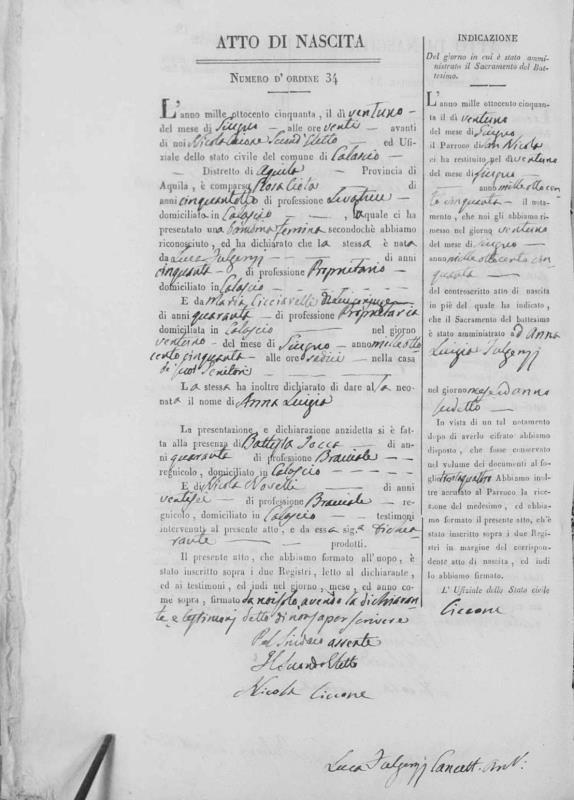 ATTO DI NASCITA
NUMERO D' ORDINE 34
L'anno mille ottocento cinquanta, il dì ventuno
del mese di Giugno alle ore venti avanti
di noi Nicola Ciccone Secondo Eletto ed Ufi-
ziale dello stato civile del comune di Calascio
Distretto di Aquila Provincia di
Aquila, è comparsa Rosa
anni cinquantotto di professione Levatrice
domiciliata in Calascio, la quale ci ha
presentato una bambina femina secondochè abbiamo
riconosciuto, ed ha dichiarato che la stessa è nata
da Luca Fulgenzj di anni
cinquanta di professione Proprietario
domiciliato in Calascio
E da Maria di Lui conjuge
di anni quaranta di professione Proprietaria
domiciliata in Calascio nel giorno
ventuno del mese di Giugno anno mille otto
cento cinquanta alle ore sedici nella casa
di suoi Genitori
La stessa ha inoltre dichiarato di dare alla neo-
nata il nome di Anna Luigia
La presentazione, e dichiarazione anzidetta si è fat-
ta alla presenza di Battista di an-
ni quaranta di professione Bracciale
regnicolo, domiciliato in Calascio
E di Nicola Novelli di anni
ventisei di professione Bracciale re-
gnicolo, domiciliato in Calascio testimoni
intervenuti al presente atto, e da essa sig.a Dichia
rante prodotti.
Il presente atto, che abbiamo formato all'uopo, è
stato inscritto sopra i due Registri, letto al dichiarante,
ed ai testimoni, ed indi nel giorno, mese, ed anno co-
me sopra, firmato da noi solo avendo la dichiaran
te, e testimonj detto di non saper scrivere
Pel Sindaco assente
Il Secondo Eletto
Nicola Ciccone
Luca Fulgenzj Cancell.
INDICAZIONE
Del giorno in cui è stato ammi-
nistrato il Sacramento del Bat-
tesimo.
L'anno mille ottocento cinquan-
ta il dì ventuno
del mese di Giugno
il Parroco di San Nicola
ci ha restituito nel dì ventuno
del mese di Giugno
anno mille otto cen
to cinquanta il nota-
mento, che noi gli abbiamo ri-
messo nel giorno ventuno
del mese di Giugno
anno mille otto cento cin
quanta
del controscritto atto di nascita
in piè del quale ha indicato,
che il Sacramento del battesimo
è stato amministrato ad Anna
Luigia Fulgenzj
nel giorno mese ed anno
sudetto
In vista di un tal notamento
dopo di averlo cifrato abbiamo
disposto, che fosse conservato
nel volume dei documenti al fo-
glio trentaquattro Abbiamo inol-
tre accusato al Parroco la rice-
zione del medesimo, ed abbia-
mo formato il presente atto, ch'è
stato inscritto sopra i due Regi-
stri in margine del corrispon-
dente atto di nascita, ed indi
lo abbiamo firmato.
L' Ufiziale dello Stato civile
Ciccone